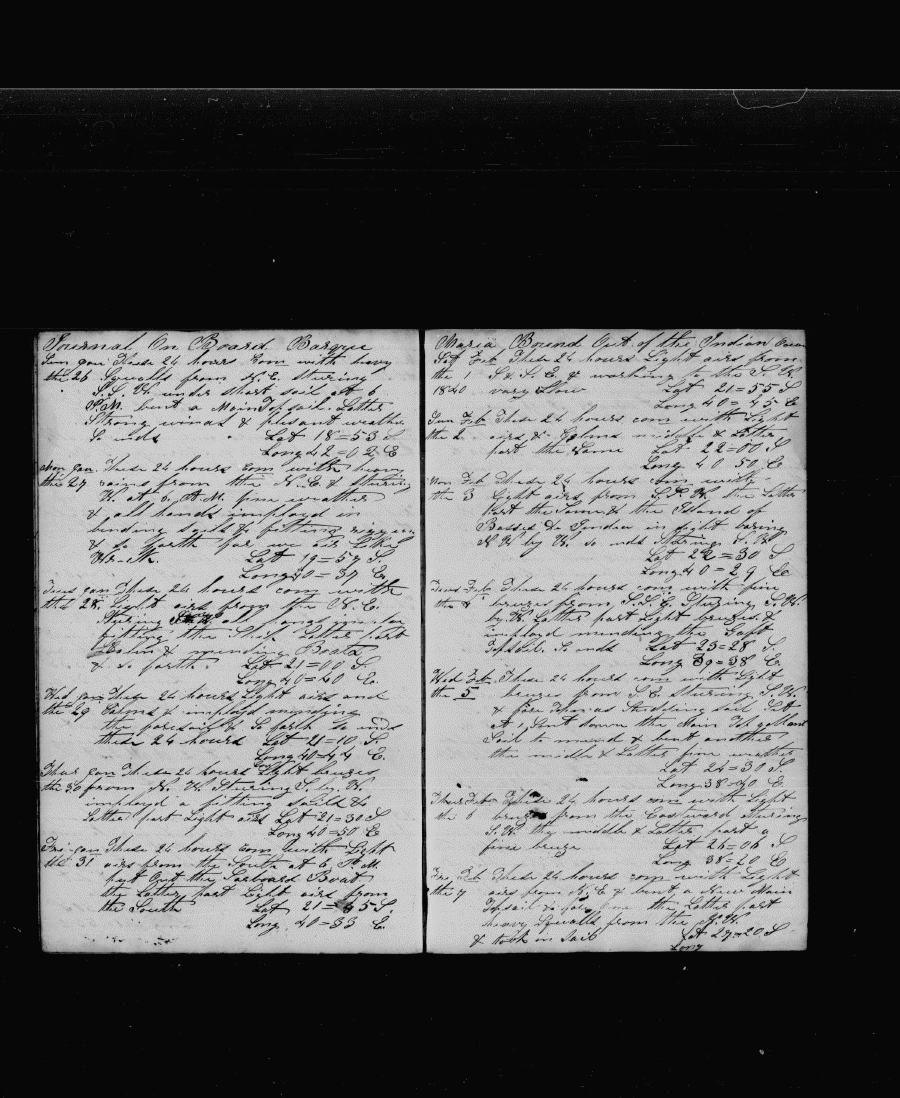 Journal On Board Barque
Sun Jan These 24 hours Com with hevy
the 26 Squalls from N. E. stering
S. S. W. under short sail at 6
P.M. bent a Main Topsail. Latter
Strong winds & plesant weather
So ends Lat 18=53 S
Long 42=02 E
Mon Jan These 24 hours Com with hevy
the 27 rains from the N. E & Stering
W. At 6 A.M. fine weather
& all hands imployd in
bending sails & fitting riggin
& so forth for we air
Lat 19=57 S.
Long 40=37 E
Tues Jan These 24 hours com with
the 28 light airs from the N. E.
Stering S.W. all
fitting the Ship Latter part
Calm & mending Boats
& so forth. Lat 21=00 S
Long 40=40 E.
Wed Jan These 24 hours Light airs and
the 29 Calms & imployd mending
the foresail & so forth So ends
these 24 hours Lat 21=10 S.
Long 40=44 E.
Thur Jan These 24 hours Light brezes
the 30 from N. W. Stering S. by W.
imployd a fitting Sails &c
Latter part Light airs Lat 21=30 S
Long 40=50 E
Fri Jan These 24 hours Com with Light
the 31 airs from the South at 6 P. M
put Out the Larboard Boat
the Latter part Light airs from
the South Lat 21=45 S.
Long. 40=33 E.
Maria Bound Out of the Indian Ocean
Sat Feb These 24 hours Light airs from
the 1 S & S. E & working to the S. W
1840 vary Slow Lat 21=55 S
Long 40=45 E
Sun Feb These 24 hours com with Light
the 2 airs & Calms middle & Latter
part the Same Lat 22=00 S
Long 40 50 E
Mon Feb These 24 hours com with
the 3 Light airs from S. S. W the Latter
Part the Same & the Island of
Basses de Indias in sight baring
N W by W. so ends Stering S. W
Lat 22=30 S
Long 40=29 E
Tues Feb These 24 hours com with fine
the 4 brezes from S. S. E. Stering S. W.
by W. Latter part Light brezes. &
imployd mending the
Topsail. So ends Lat 23=28 S.
Long 39=38 E
Wed Feb. These 24 hours com with Light
the 5 brezes from S. E stering S. W
& fore Topmas Studding sail Set
At 1 Sent down the Main Top gallant
Sail to mend & bent another
the middle & Latter fine weather
Lat 24=30 S.
Long 38=40 E.
Thurs Feb These 24 hours com with Light
the 6 brezes from the Eastward stering
S.W. the middle & Latter part a
fine breze Lat 26=06 S
Long 38=20 E
Fri Feb These 24 hours com with Light
the 7 airs from N. E & bent a New Main
Topsail & fine the Latter part
heavy Squalls from the S. W
& took in Sail Lat 27=20 S
Long